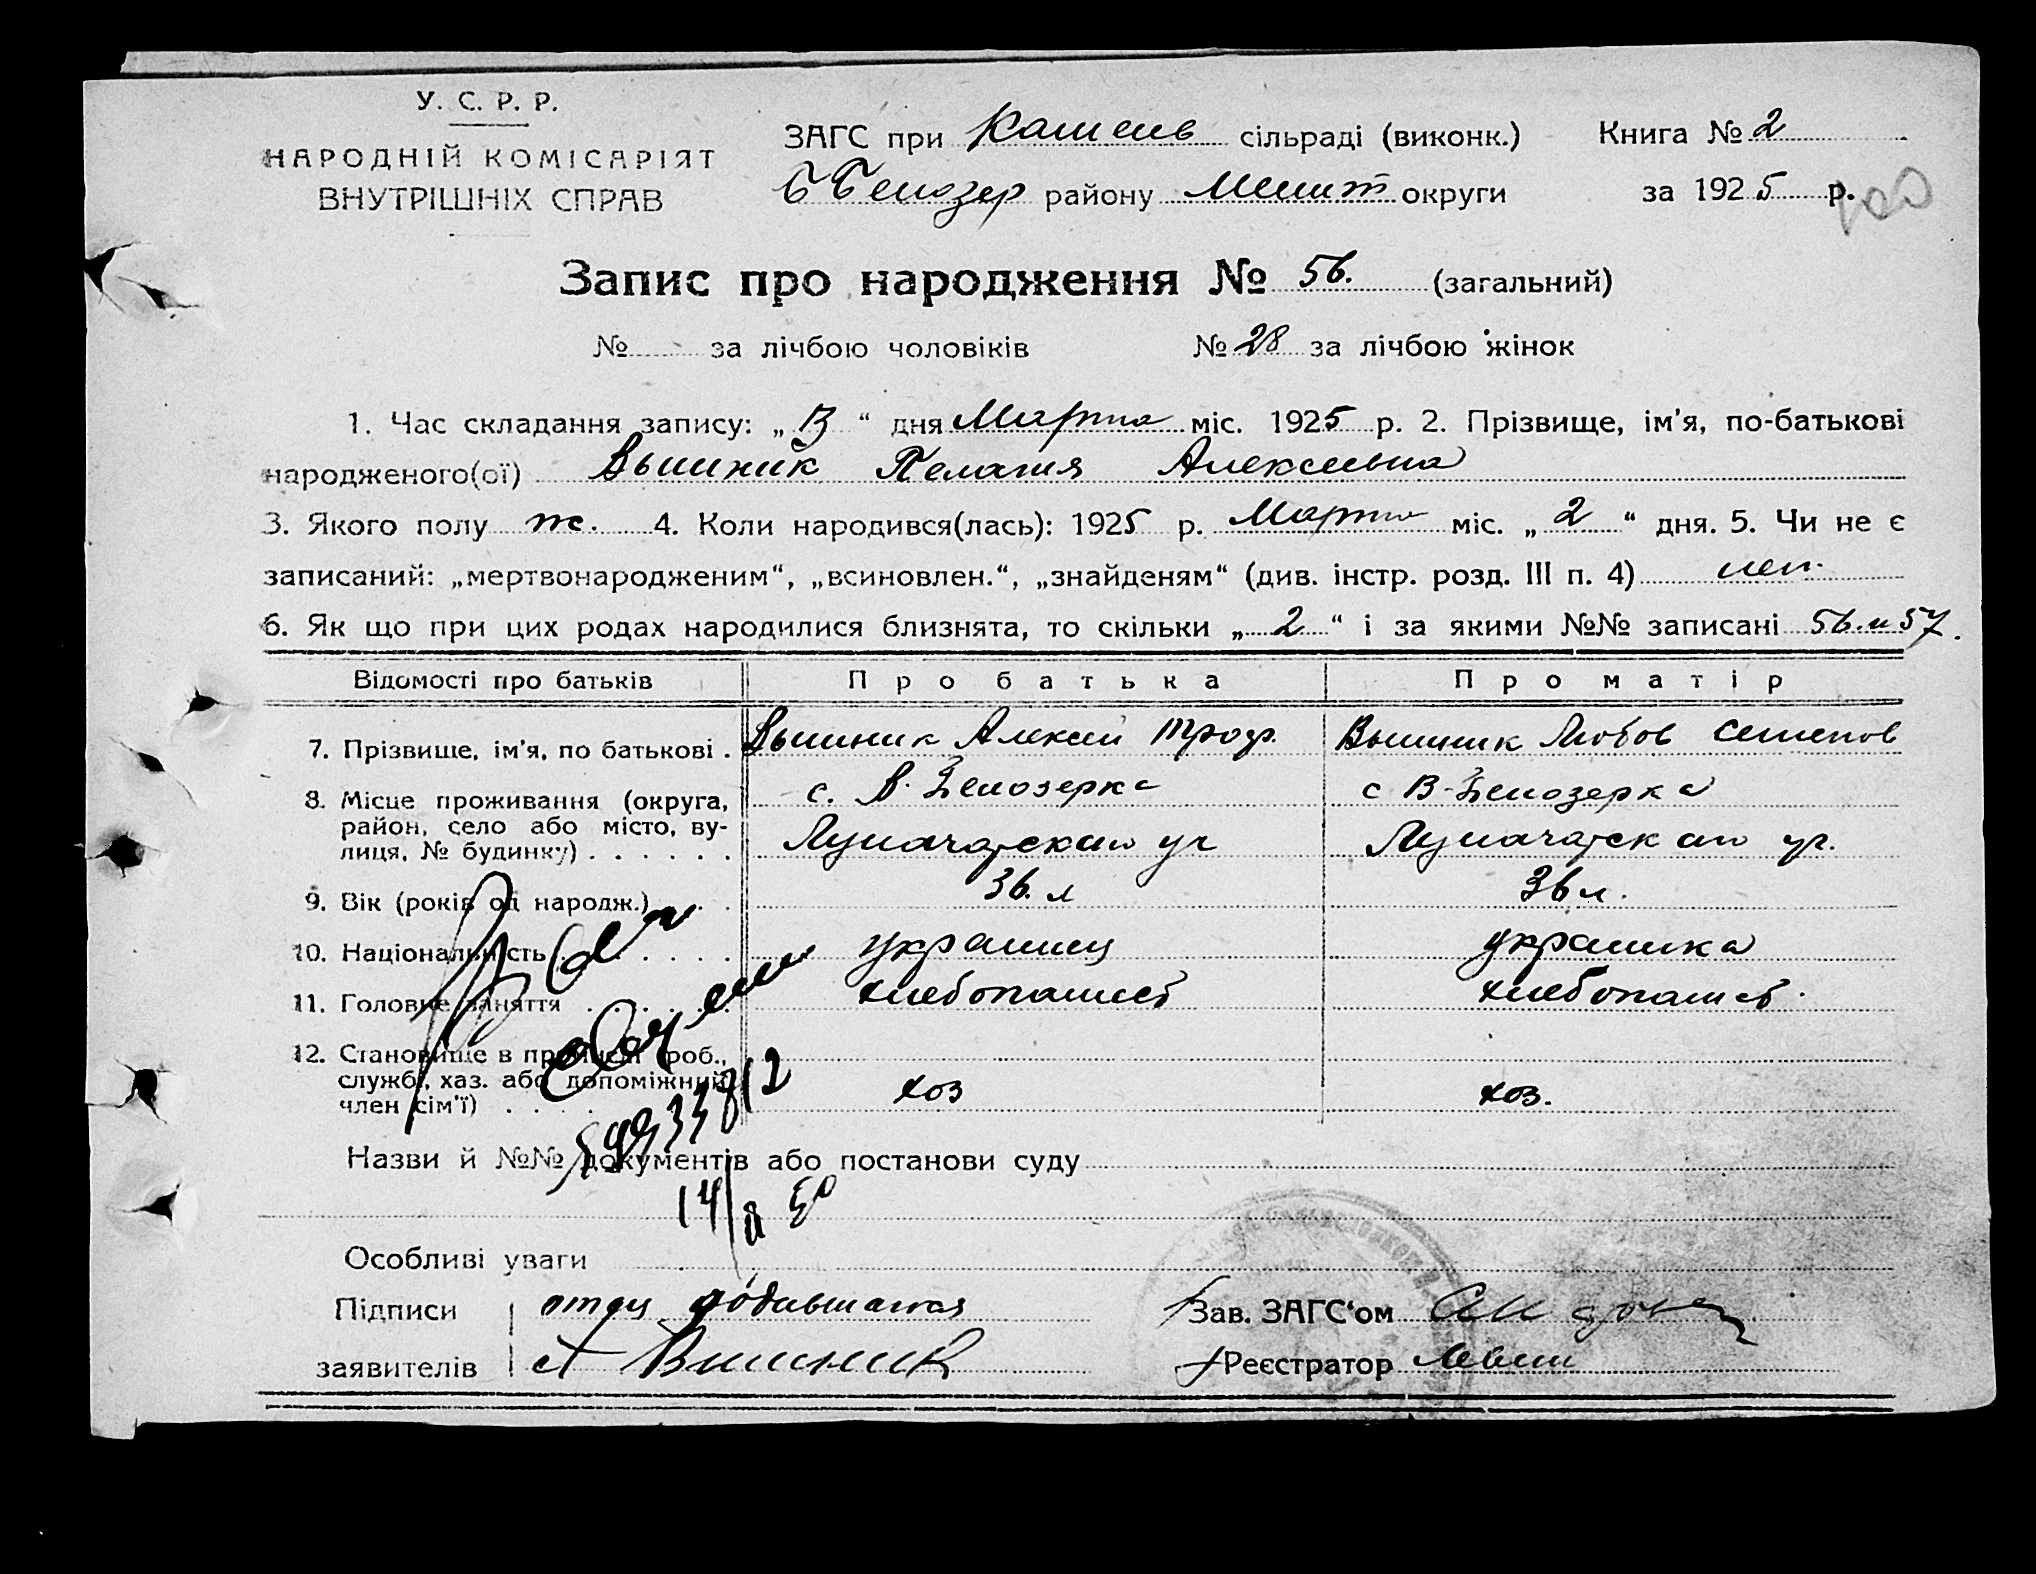 У. С. Р. Р.
НАРОДНІЙ КОМІСАРІЯТ
ВНУТРІШНІХ СПРАВ
ЗАГС при сільраді (виконк.) Книга № 2
Белозер району Мелит округи за 1925 р.
Запис про народження № 56. (загальний)
№ за лічбою чоловіків № 28 за лічбою жінок
1. Час складання запису: „ “ дня Марта міс. 1925 р. 2. Прізвище, ім'я, по-батькові
народженого(ої) Вышник Пелагия Алексеевна
3. Якого полу ж. 4. Коли народився(лась): 1925 р. Марта міс. „ 2 “ дня. 5. Чи не є
записаний: „мертвонародженим“, „всиновлен.“, „знайденям“ (див. інстр. розд. III п. 4) нет.
6. Як що при цих родах народилися близнята, то скільки „ 2 “ і за якими №№ записані 56. и 57.
Відомості про батьків Про батька Про матір
7. Прізвище, ім'я, по батькові . Вышник Алексей Троф. Вышник Любов Семенов
8. Місце проживання (округа, с. В. Белозерка с В-Белозерка
район, село або місто, ву-
лиця, № будинку) . . . . . . Луначарская ул Луначарская ул.
9. Вік (років од народж.) . . 36. л 36 л.
10. Національність . . . . . украинец украинка
11. Головне заняття . . . . . хлебопашес хлебопашес.
12. Становище в промислі (роб.,
службі, хаз. або допоміжний
член сім'ї) . . . . хоз хоз.
Назви й №№ документів або постанови суду
14/
Особливі уваги
Підписи отец родившагося Зав. ЗАГС'ом
заявителів А Вишник Реєстратор Левин